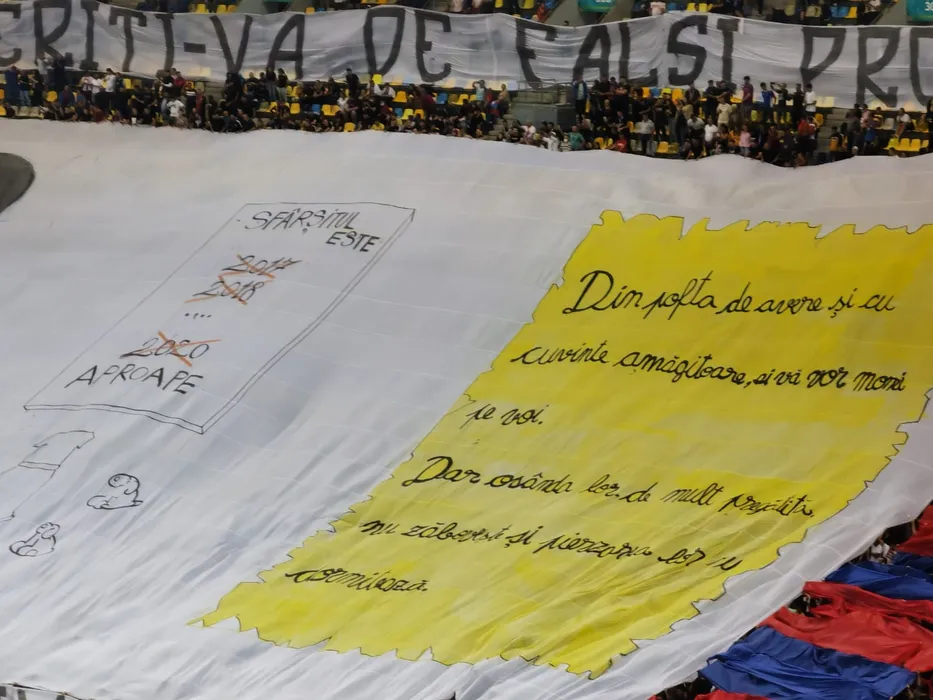 ERITI-VA DE FALSI PRO
SFÂRȘITUL
ESTE
2017
2018
....
2020
APROAPE
Din pofta de avere și cu
cuvinte amăgitoare, ei vă vor momi
pe voi.
Dar osânda lor, de mult pregătită,
nu zăbovește și pierzarea lor nu
dormitează.